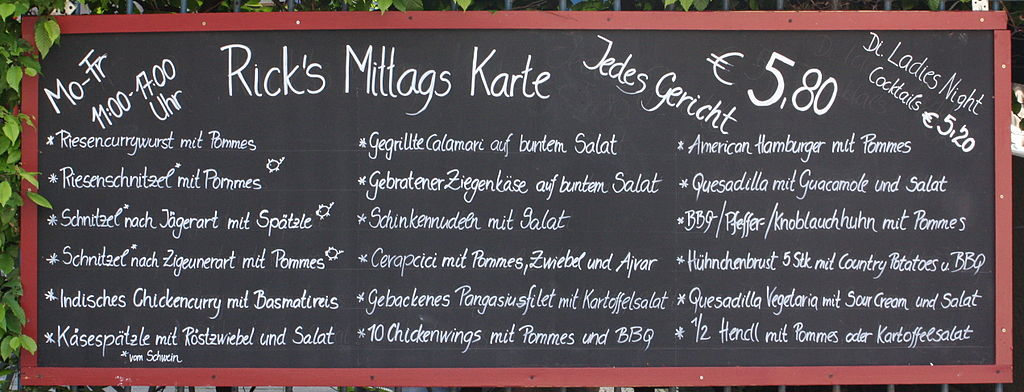 Mo-Fr
11:00-17:00
Uhr
Rick's Mittags Karte
Jedes Gericht
€ 5,80
Di. Ladies Night
Cocktails € 5,20
* Riesencurrywurst mit Pommes
* Riesenschnitzel* mit Pommes
* Schnitzel* nach Jägerart mit Spätzle
* Schnitzel* nach Zigeunerart mit Pommes
* Indisches Chickencurry mit Basmatireis
* Käsespätzle mit Röstzwiebel und Salat
* vom Schwein
* Gegrillte Calamari auf buntem Salat
* Gebratener Ziegenkäse auf buntem Salat
* Schinkennudeln mit Salat
* Cerapcici mit Pommes, Zwiebel und Ajvar
* Gebackenes Pangasiusfilet mit Kartoffelsalat
* 10 Chickenwings mit Pommes und BBQ
* American Hamburger mit Pommes
* Quesadilla mit Guacamole und Salat
* BBQ-/Pfeffer-/Knoblauchhuhn mit Pommes
* Hühnchenbrust 5 Stk mit Country Potatoes u. BBQ
* Quesadilla Vegetaria mit Sour Cream und Salat
* 1/2 Hendl mit Pommes oder Kartoffelsalat